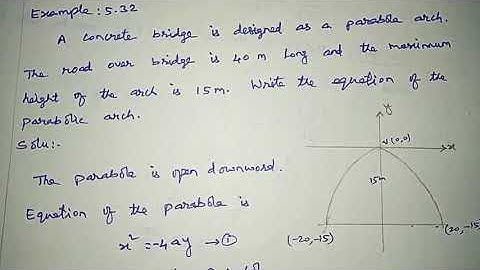 Example: 5.32
A concrete bridge is designed as a parabola arch.
The road over bridge is 40 m long and the maximum
height of the arch is 15m. Write the equation of the
parabolic arch.
Solu:-
The parabola is open downward.
Equation of the parabola is
x² = -4ay → ①
y
V(0,0)
x
15m
(-20,-15)
(20,-15)